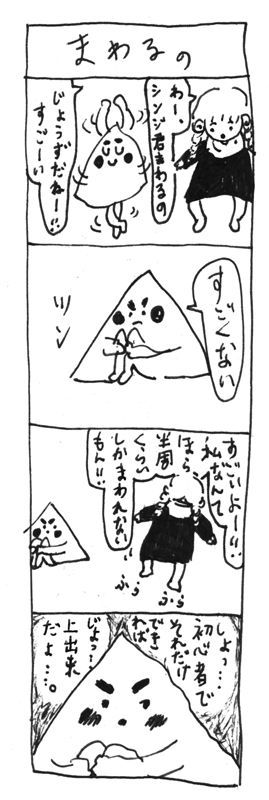 まわるの
わー、
シンジ君まわるの
じょうずだねー!!
すごーい
すごくない
ツン
すごいよー!!
私なんて
ほら
半周
くらい
しかまわれない
もん!!
ふら
ふら
しょっ…
初心者で
それだけ
できれば
じょっ…
上出来
だよ…。